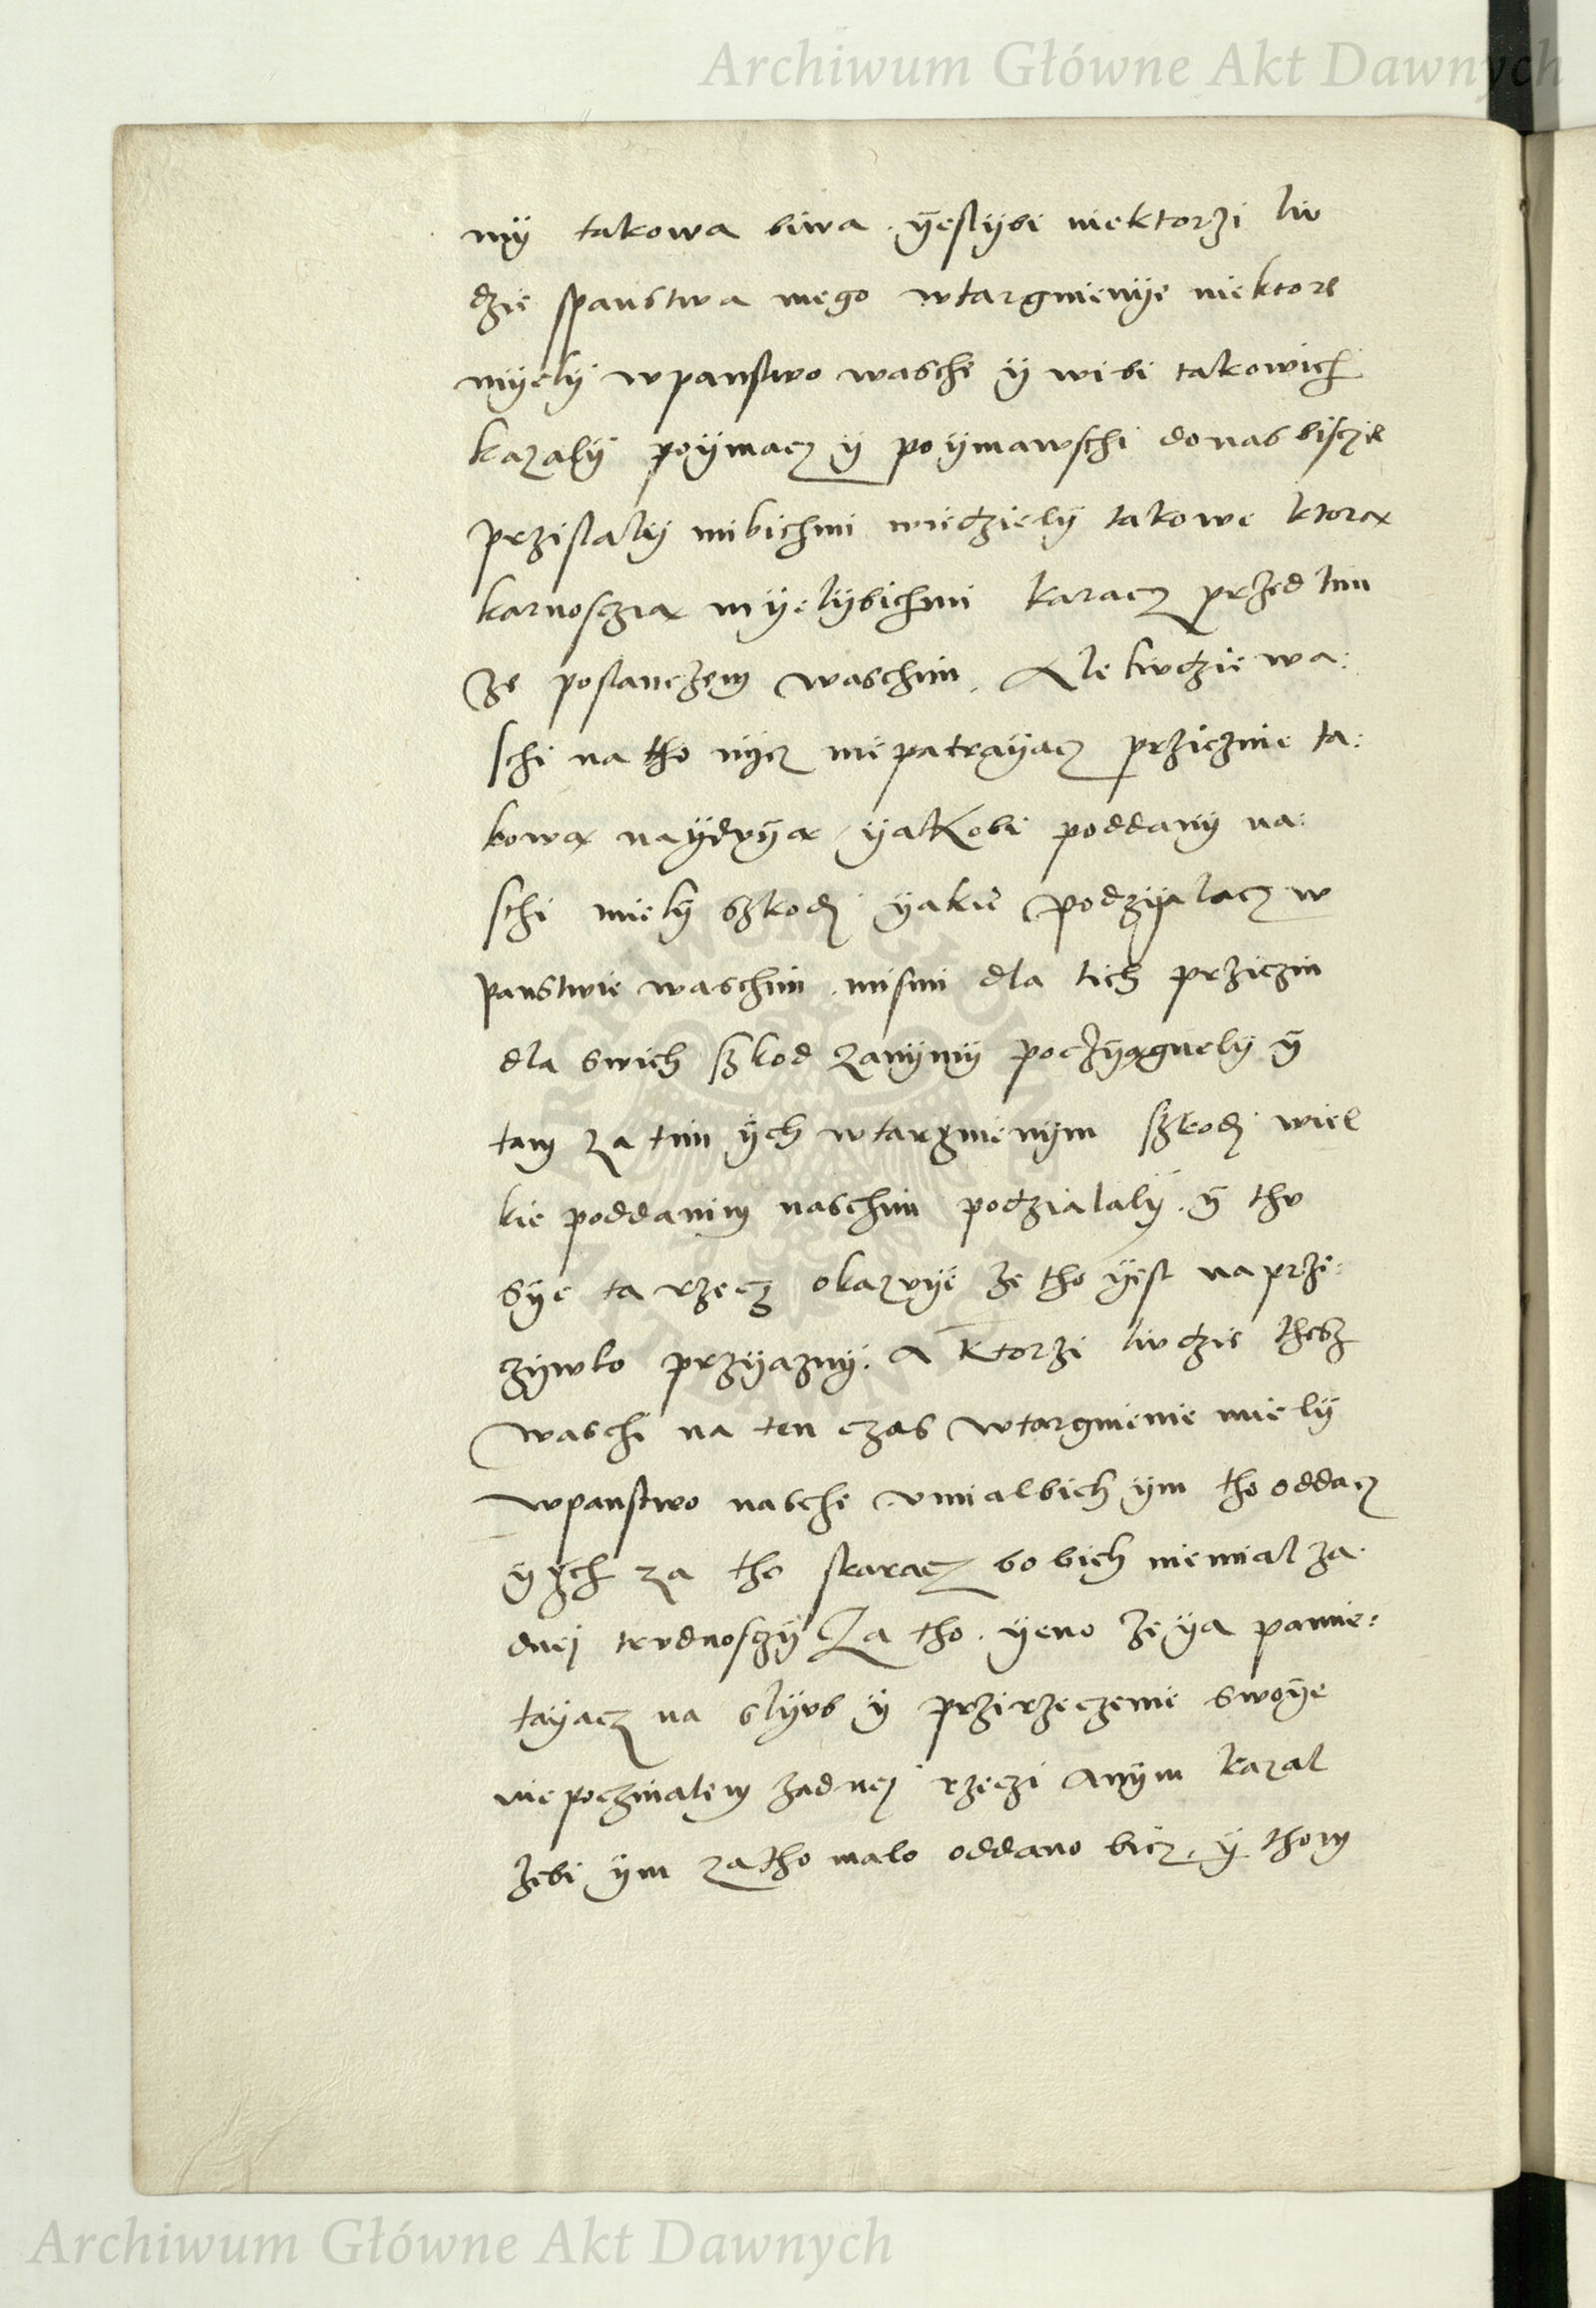 Archiwum Główne Akt Dawnych
mÿ takowa biwa. ÿeslÿbi niektorzi lu
dzie spanstwa mego wtargnienÿe niektore
mÿelÿ wpanstwo wasche ÿ wibi takowich
kazalÿ poÿmacz ÿ poÿmawschi donas biscie
przislalÿ mibichmi wiedzielÿ takowe ktorą
karnosczią mÿelÿbichmi karacz przed tim
ze poslanczem waschim. Ale ludzie wa:
schi na tho nÿcz niepatrzaÿacz prziczine ta:
kową naÿduÿą ÿakobi poddanÿ na:
schi mielÿ szkodi ÿakie podzÿalacz w
panstwie waschim. mismi dla tich prziczin
dla swich szkod zanÿmÿ poczÿągnelÿ ÿ
tam za tim ÿch wtargnienÿm szkodi wiel
kie poddanim naschim podzialalÿ. ÿ thu
sÿe ta rzecz okazuÿe ze tho ÿest naprze:
zÿwko przÿaznÿ. A ktorzi ludzie thesz
waschi na ten czas wtargnienie mielÿ
wpanstwo nasche umialbich ÿm tho oddacz
ÿ ÿch za tho skaracz bo bich niemial za
dnej trudnosczÿ Za tho. ÿeno ze ÿa pamie:
taÿacz na slÿub ÿ przirzeczenie swoÿe
niepoczinalem zadnej rzeczi anÿm kazal
zebi ÿm zatho malo oddano bicz. ÿ thom
Archiwum Główne Akt Dawnych